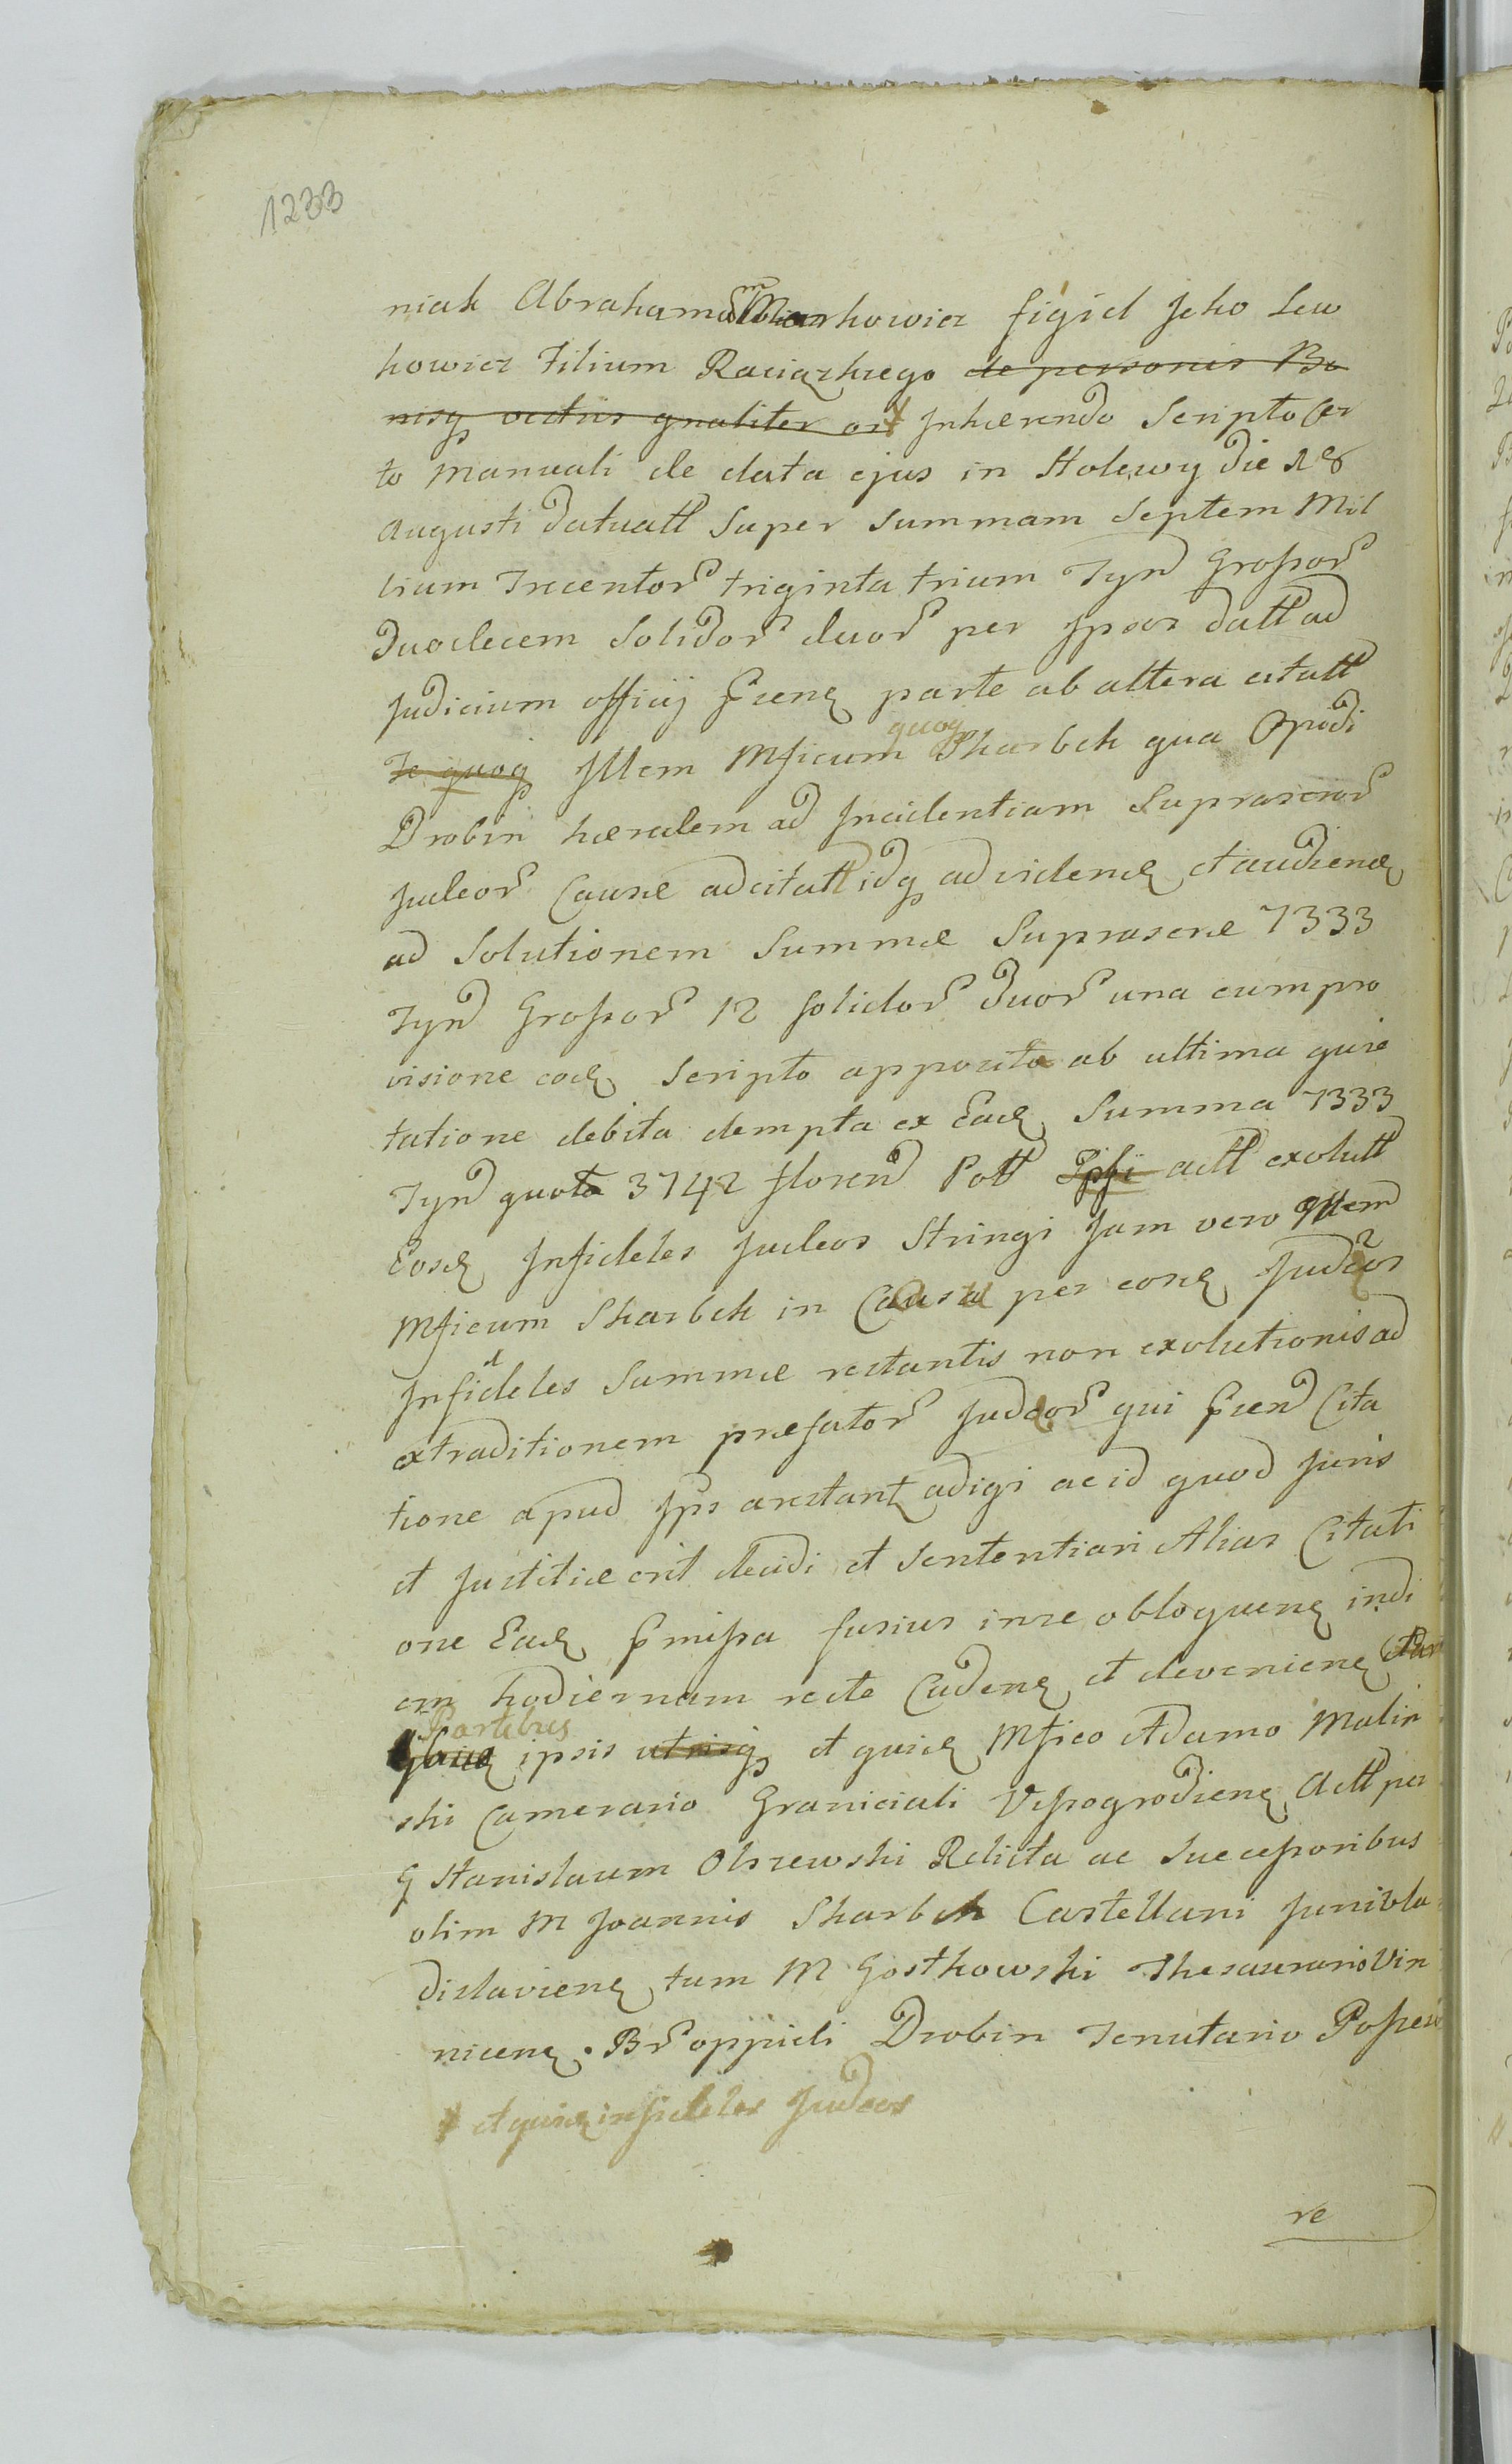 1233
niak Abrahamum Markowicz figiel Jcko Lew
kowicz Filium Raciązkiego de personis Bo
nisq vestris gnaliter ort Inhærendo Scripto cer
to Manuali de data ejus in Holewy die 28
Augusti datuatt Super Summam Septem Mil
lium Trecentor triginta trium Tyn Grossor
Duodecem Solidor duor per Ipsos datt ad
Judicium officij pnens parte ab altera citatt
Te quoq Illem Mficum quoq Skarbek qua Opidi
Drobin hæredem ad Incidentiam Suprascrior
Judeor Causæ adcitatt idq ad videnđ et audienđ
ad Solutionem Summæ Suprascræ 7333
Tyn Grossor 12 solidor Duor una cum pro
visione eođ Scripto apposita ab ultima quie
tatione debita dempta ex Eađ Summa 7333
Tyn quota 3742 floren Poll Ipsi actt exolutt
Eosđ Infideles Judeos Stringi Jam vero Illem
Mficum Skarbek in Causa per eosđ Judeos
Infideles Summæ restantis non exolutionis ad
extraditionem præfator Judeor qui pnen Cita
tione apud Ips arestant adigi ac id quod Juris
et Justitiæ erit decidi et Sententiari Alias Citati
one Eađ pmissa fusius in re obloquenđ in di
em hodiernam recte Cadenđ et devenienđ
Partibus
ipsis utrisq et quiđ Mfico Adamo Malin
ski Camerario Graniciali Vissogrodienđ Actt per
G Stanislaum Olszewski Relicta ac Successoribus
olim M Joannis Skarbek Castellani Junivla
dislavienđ tum M Gostkowski Thesaurario Vin
nicenđ . Br oppidi Drobin Tenutario Posses
et quiđ infideles Judeos
re